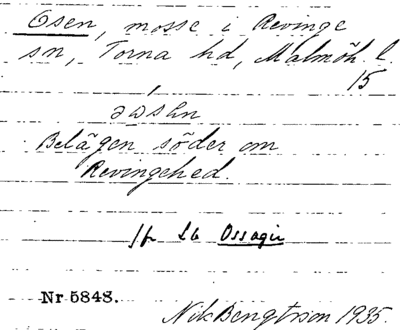 Osen, mosse i Revinge
sn, Torna hd, Malmöh. l.
15
Belägen söder om
Revingehed.
Jfr Ossagir
Nr 5848.
Nik Bengtsson 1935.